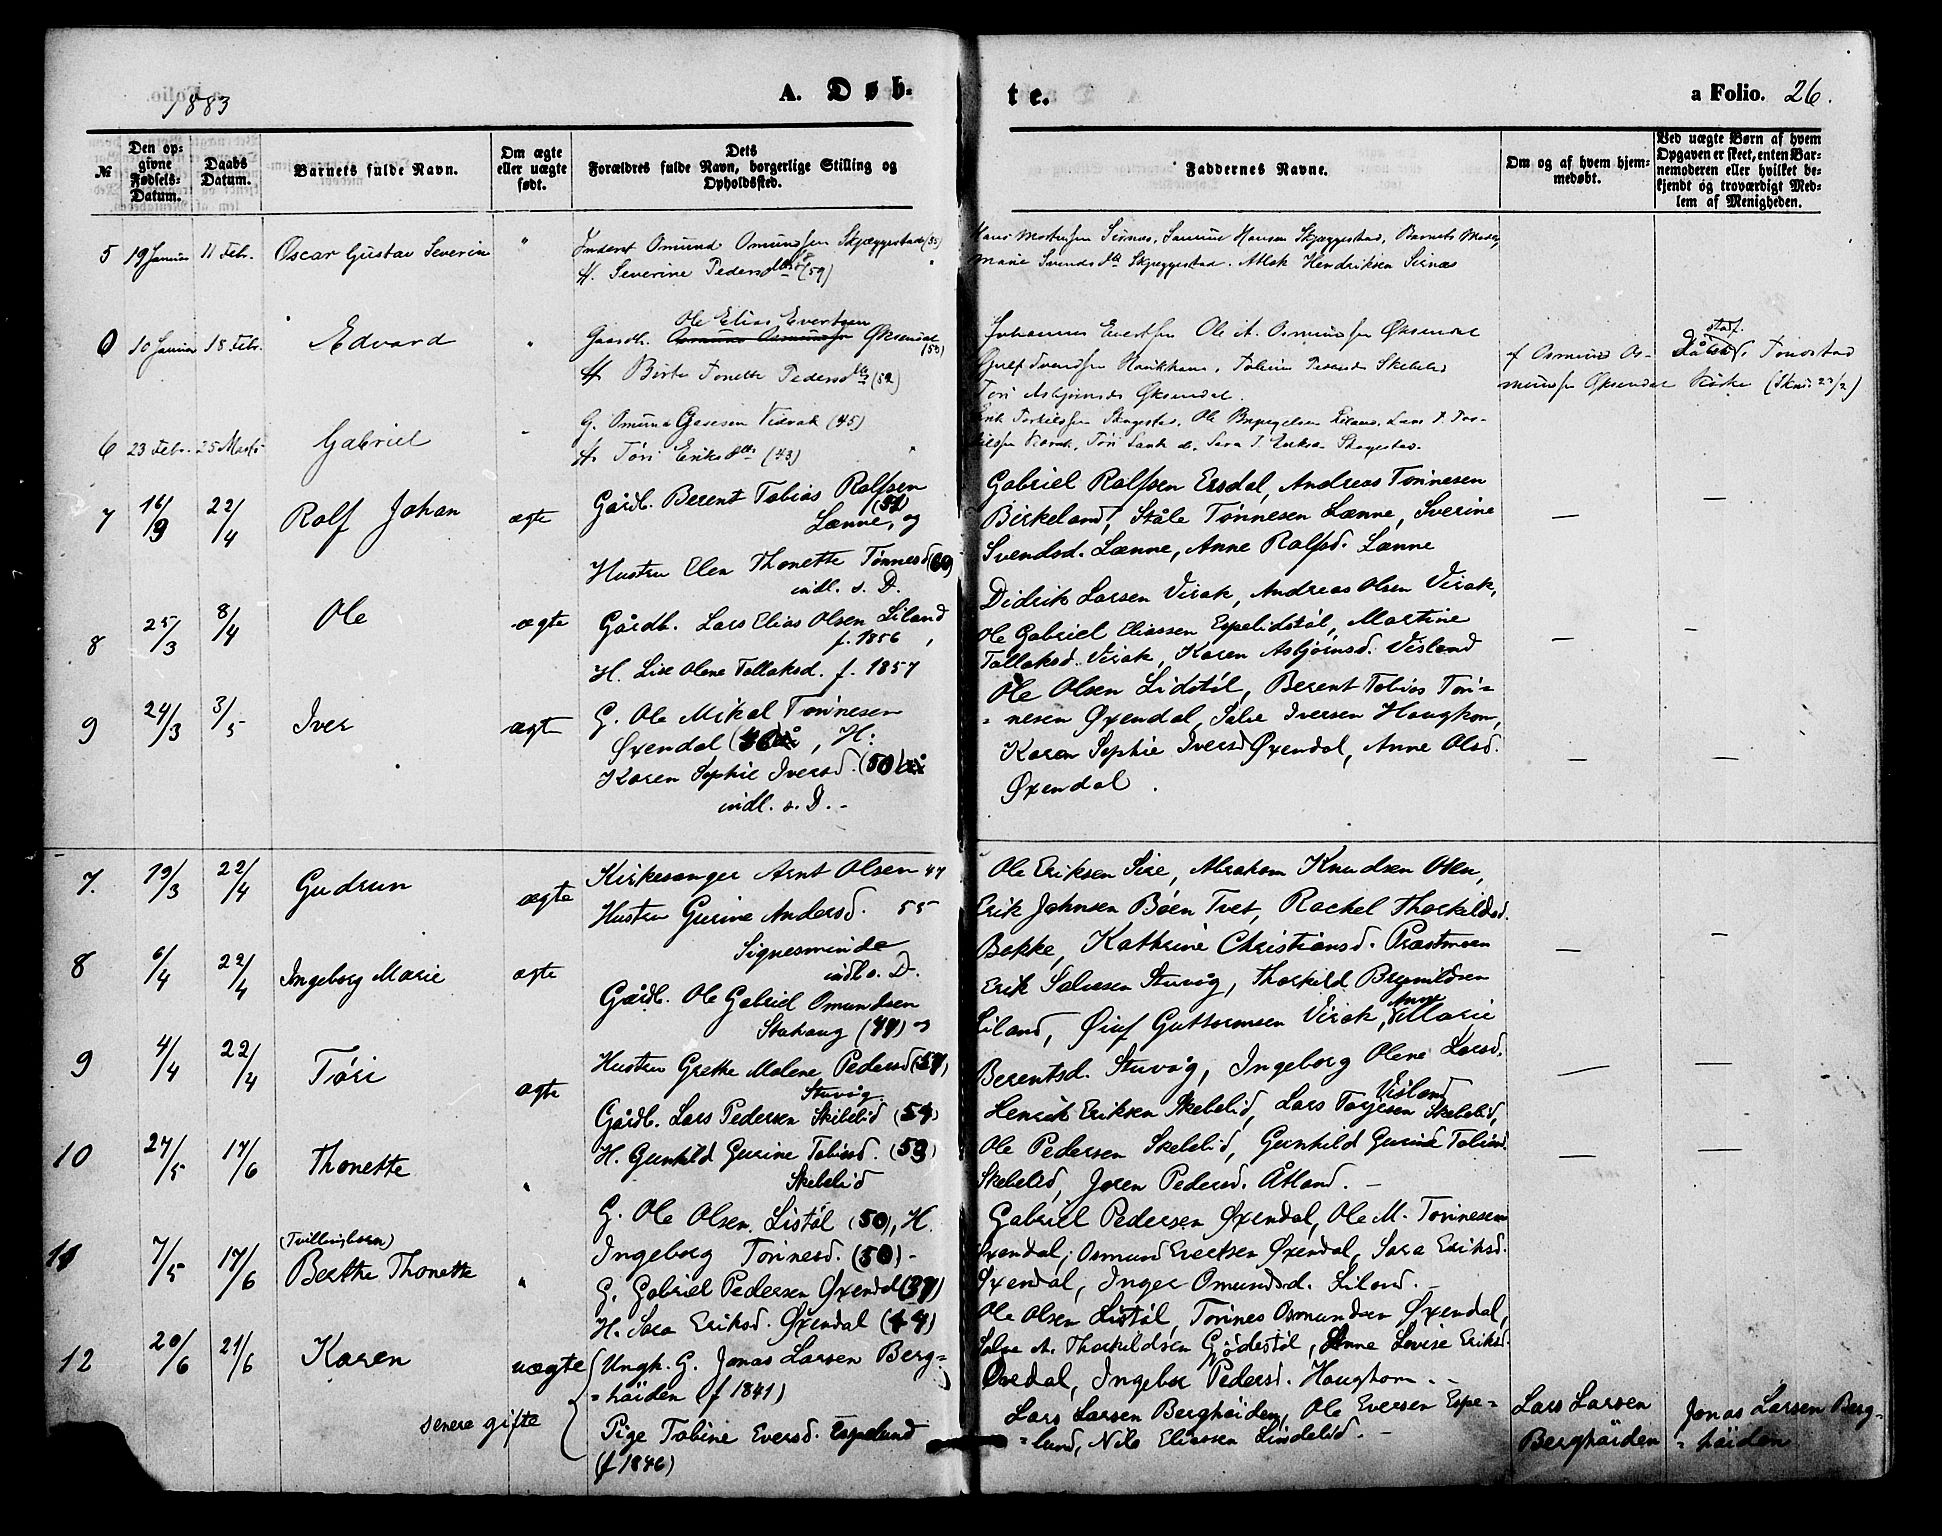 1883
A. Døb-
te.
a Folio. 26.
№
Den opgivne Fødsels-Datum.
Daabs Datum.
Barnets fulde Navn.
Om ægte eller uægte født.
Dets Forældres fulde Navn, borgerlige Stilling og Opholdssted.
Faddernes Navne.
Om og af hvem hjemmedøbt.
Ved uægte Børn af hvem Opgaven er skeet, enten Barnemoderen eller hvilket bekjendt og troværdigt Medlem af Menigheden.
5 19 Januar 11 Febr. Oscar Gustav Severin "
Inderst Omund Omundsen Skjeggestad (55)
H. Severine Pedersdtr (59)
Samuel Hansen Skjeggestad, Barnets Moder,
Marie Svendsdtr Skjeggestad. Atlak Hendriksen Sirnæs
6 10 Januar 18 Febr. Edvard "
Ole Elias Evertsen
Gaardb. Osmund Osmundsen Øksendal (53)
H. Birte Tonette Pedersdtr (52)
Johannes Evertsen Ole A. Osmundsen Øksendal
Tobine Pedersdr Skebelid
Tøri Asbjørnsdr Øksendal.
f Osmund Os-
mundsen Øksendal
Tonstad
Kirke
6 23 Febr. 25 Marts Gabriel "
G. Omund Gasesen Virak (45)
H. Tøri Eriksdtr (43)
Skagestad.
7 16/9 22/4 Rolf Johan ægte
Gårdb. Berent Tobias Rolfsen
(52)
Lænne, og
Hustru Elen Thonette Tønnesd (60)
indl. s. D.
Gabriel Rolfsen Ersdal, Andreas Tønnesen
Birkeland, Ståle Tønnesen Lænne, Sverine
Svendsd. Lænne, Anne Rolfsd. Lænne
— —
8 25/3 8/4 Ole ægte
Gårdb. Lars Elias Olsen Liland
f. 1856,
H. Lise Olene Tallaksd. f. 1857
Didrik Larsen Virak, Andreas Olsen Virak,
Ole Gabriel Eliassen Espelidstøl, Martine
Tallaksd. Virak, Karen Asbjørnsd. Visland
— —
9 24/3 3/5 Iver ægte
G. Ole Mikal Tønnesen
Øxendal , H:
Karen Sophie Iversd. (50)
indl. s. D. -
Ole Olsen Lidstøl, Berent Tobias Tøn-
-nesen Øxendal, Salve Iversen Haughom,
Karen Sophie Iversd Øxendal, Anne Olsd.
Øxendal.
— —
7. 19/3 22/4 Gudrun ægte
Kirkesanger Arnt Olsen 47
Hustru Gurine Andersd. 55
Signesminde
indl s. D.
Ole Eriksen Sire, Abraham Knudsen Oken,
Erik Johnsen Bøen Tvet, Rachel Thorkildsd.
Bekke, Kathrine Christiansd. Præstmoen
— —
8 6/4 22/4 Ingeborg Marie ægte
Gårdb. Ole Gabriel Omundsen
Stahaug (49)
Hustru Grethe Malene Pedersd (57)
Stuvig
Erik Salvesen Stuvig, Thorkild Brynildsen
Liland, Øiuf Guttormsen Virak, Anne Marie
Berentsd. Stuvig, Ingeborg Olene Larsd.
Visland
— —
9 4/4 22/4 Tøri ægte
Gårdb. Lars Pedersen Skibelid (54)
H. Gunhild Gurine Tobiasd. (53)
Skebelid
Henrik Eriksen Skebelid, Lars Torjesen Skebelid,
Ole Pedersen Skebelid, Gunhild Gurine Tobiasd.
Skebelid, Joren Pedersd. Åtland. —
— —
10 27/5 17/6 Thonette "
G. Ole Olsen Listøl (50), H.
Ingeborg Tønnesd. (50) -
Gabriel Pedersen Øxendal, Ole M. Tønnesen
Øxendal, Osmund Evertsen Øxendal, Sara Eriksd.
Øxendal, Inger Omundsd. Liland. -
11 7/5 17/6 (Tvillingbarn)
Berthe Thonette "
G. Gabriel Pedersen Øxendal (37)
H. Sara Eriksd. Øxendal (44)
Ole Olsen Listøl, Tønnes Osmundsen Øxendal,
Salve A. Thorkildsen Gjødestøl, Anne Lovise Eriksd
Øxendal, Ingebor Pedersd. Haughom. -
12 20/6 21/6 Karen uægte
senere gifte
Ungk. G. Jonas Larsen Berg-
-høiden (f 1841)
Pige Tobine Eversd. Espelund
(f 1846)
Lars Larsen Berghøiden, Ole Eversen Espe-
-lund, Nils Eliassen Lindelid. -
Lars Larsen
Berghøiden
Jonas Larsen Berg-
-høiden